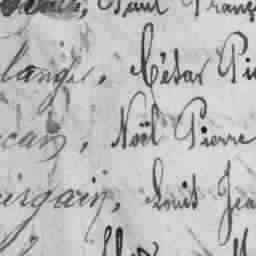 Paul Franç
lange, César Pi
can, Noël Pierre
urgain, Louis Jea